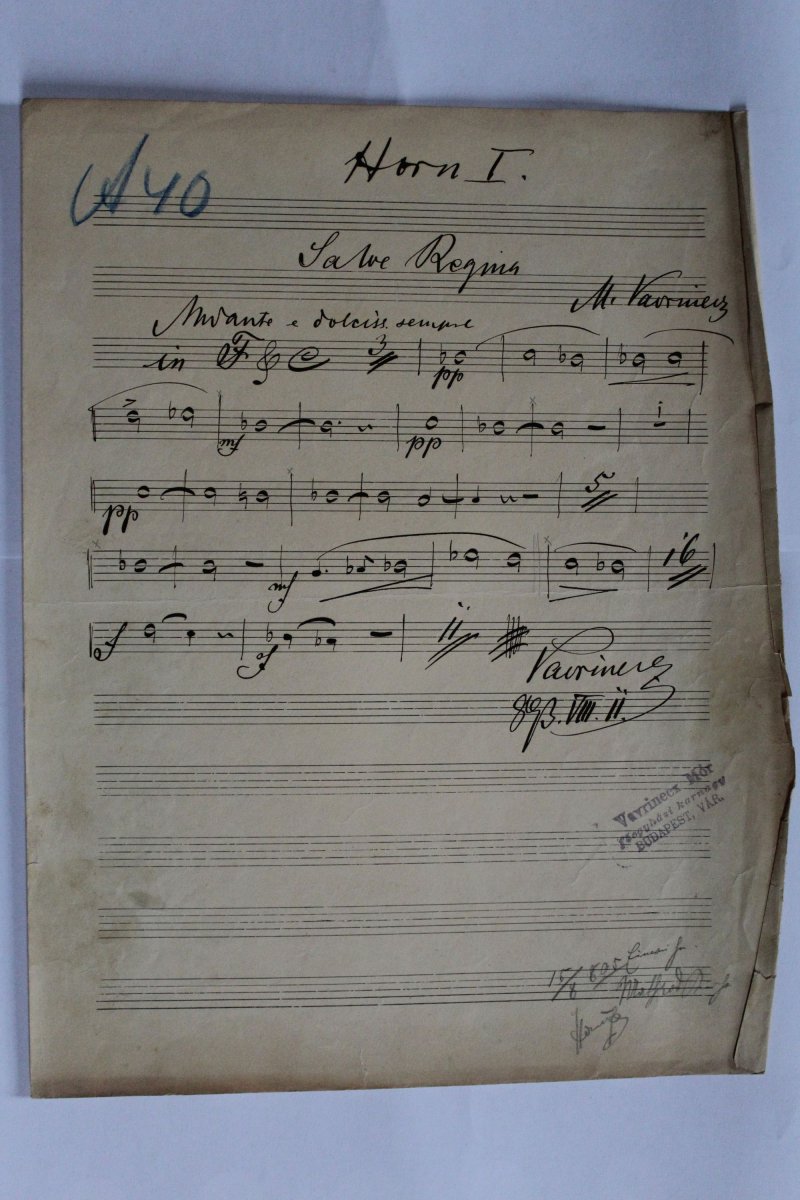 A40
Horn I.
Salve Regina
M. Vavrinecz
Andante e dolciss. sempre
in F 3 pp
mf pp 1
pp 5
mf 16
f f 11
Vavrinecz
893. VIII. 11.
Vavrinecz Mór
főegyházi karnagy
BUDAPEST, VÁR.
15/6 895